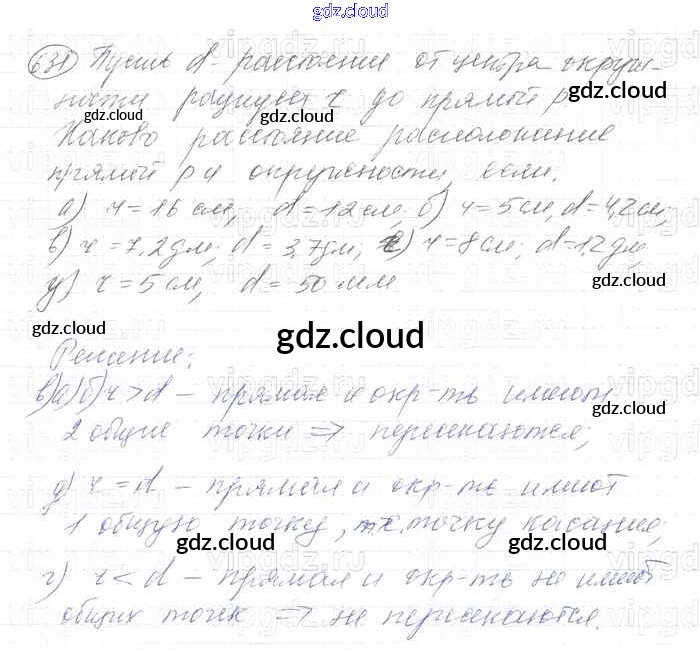 gdz.cloud
631) Пусть d - расстояние от центра окруж-
ности радиуса r до прямой p.
gdz.cloud
gdz.cloud
Каково расстояние расположение
gdz.cloud
прямой p и окружности если:
а) r = 16 см, d = 12 см, б) r = 5 см, d = 4,2 см;
в) r = 7,2 дм; d = 3,7 дм; г) r = 8 см; d = 1,2 дм;
д) r = 5 см, d = 50 мм
gdz.cloud
gdz.cloud
gdz.cloud
Решение:
в)а)б) r > d - прямая и окр-ть имеют
gdz.cloud
2 общие точки => пересекаются;
д) r = d - прямая и окр-ть имеют
1 общую точку, т.е. точку касания;
gdz.cloud
gdz.cloud
г) r < d - прямая и окр-ть не имеют
общих точек => не пересекаются.